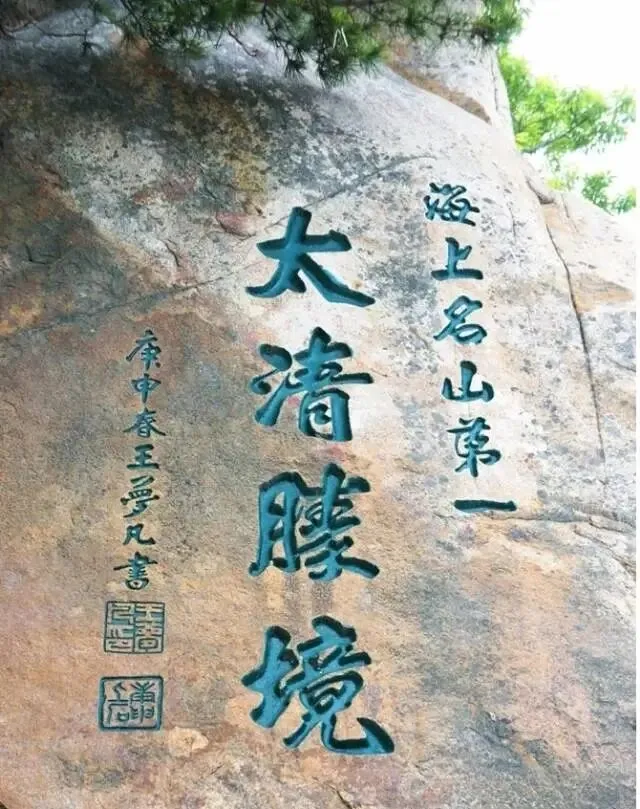 海上名山第一
太清勝境
庚申春王夢凡書